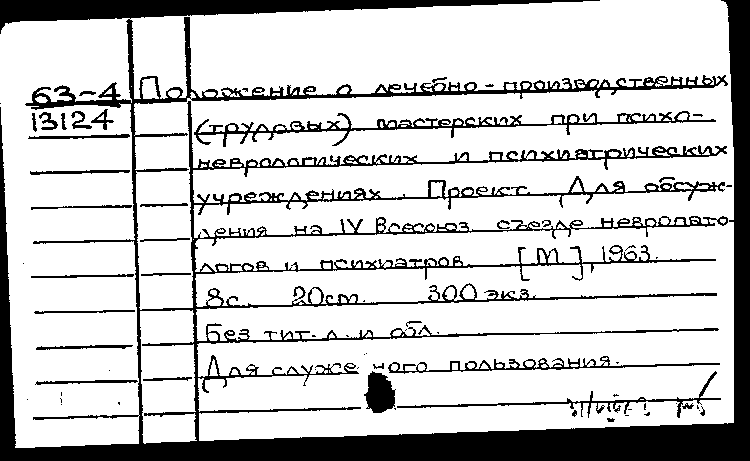 63-4 Положение о лечебно-производственных
13124 (трудовых) мастерских при психо-
неврологических и психиатрических
учреждениях. Проект. Для обсуж-
дения на IV Всесоюз. съезде невропато-
логов и психиатров. [М], 1963.
8с. 20см. 300 экз.
Без тит. л. и обл.
Для служебного пользования.